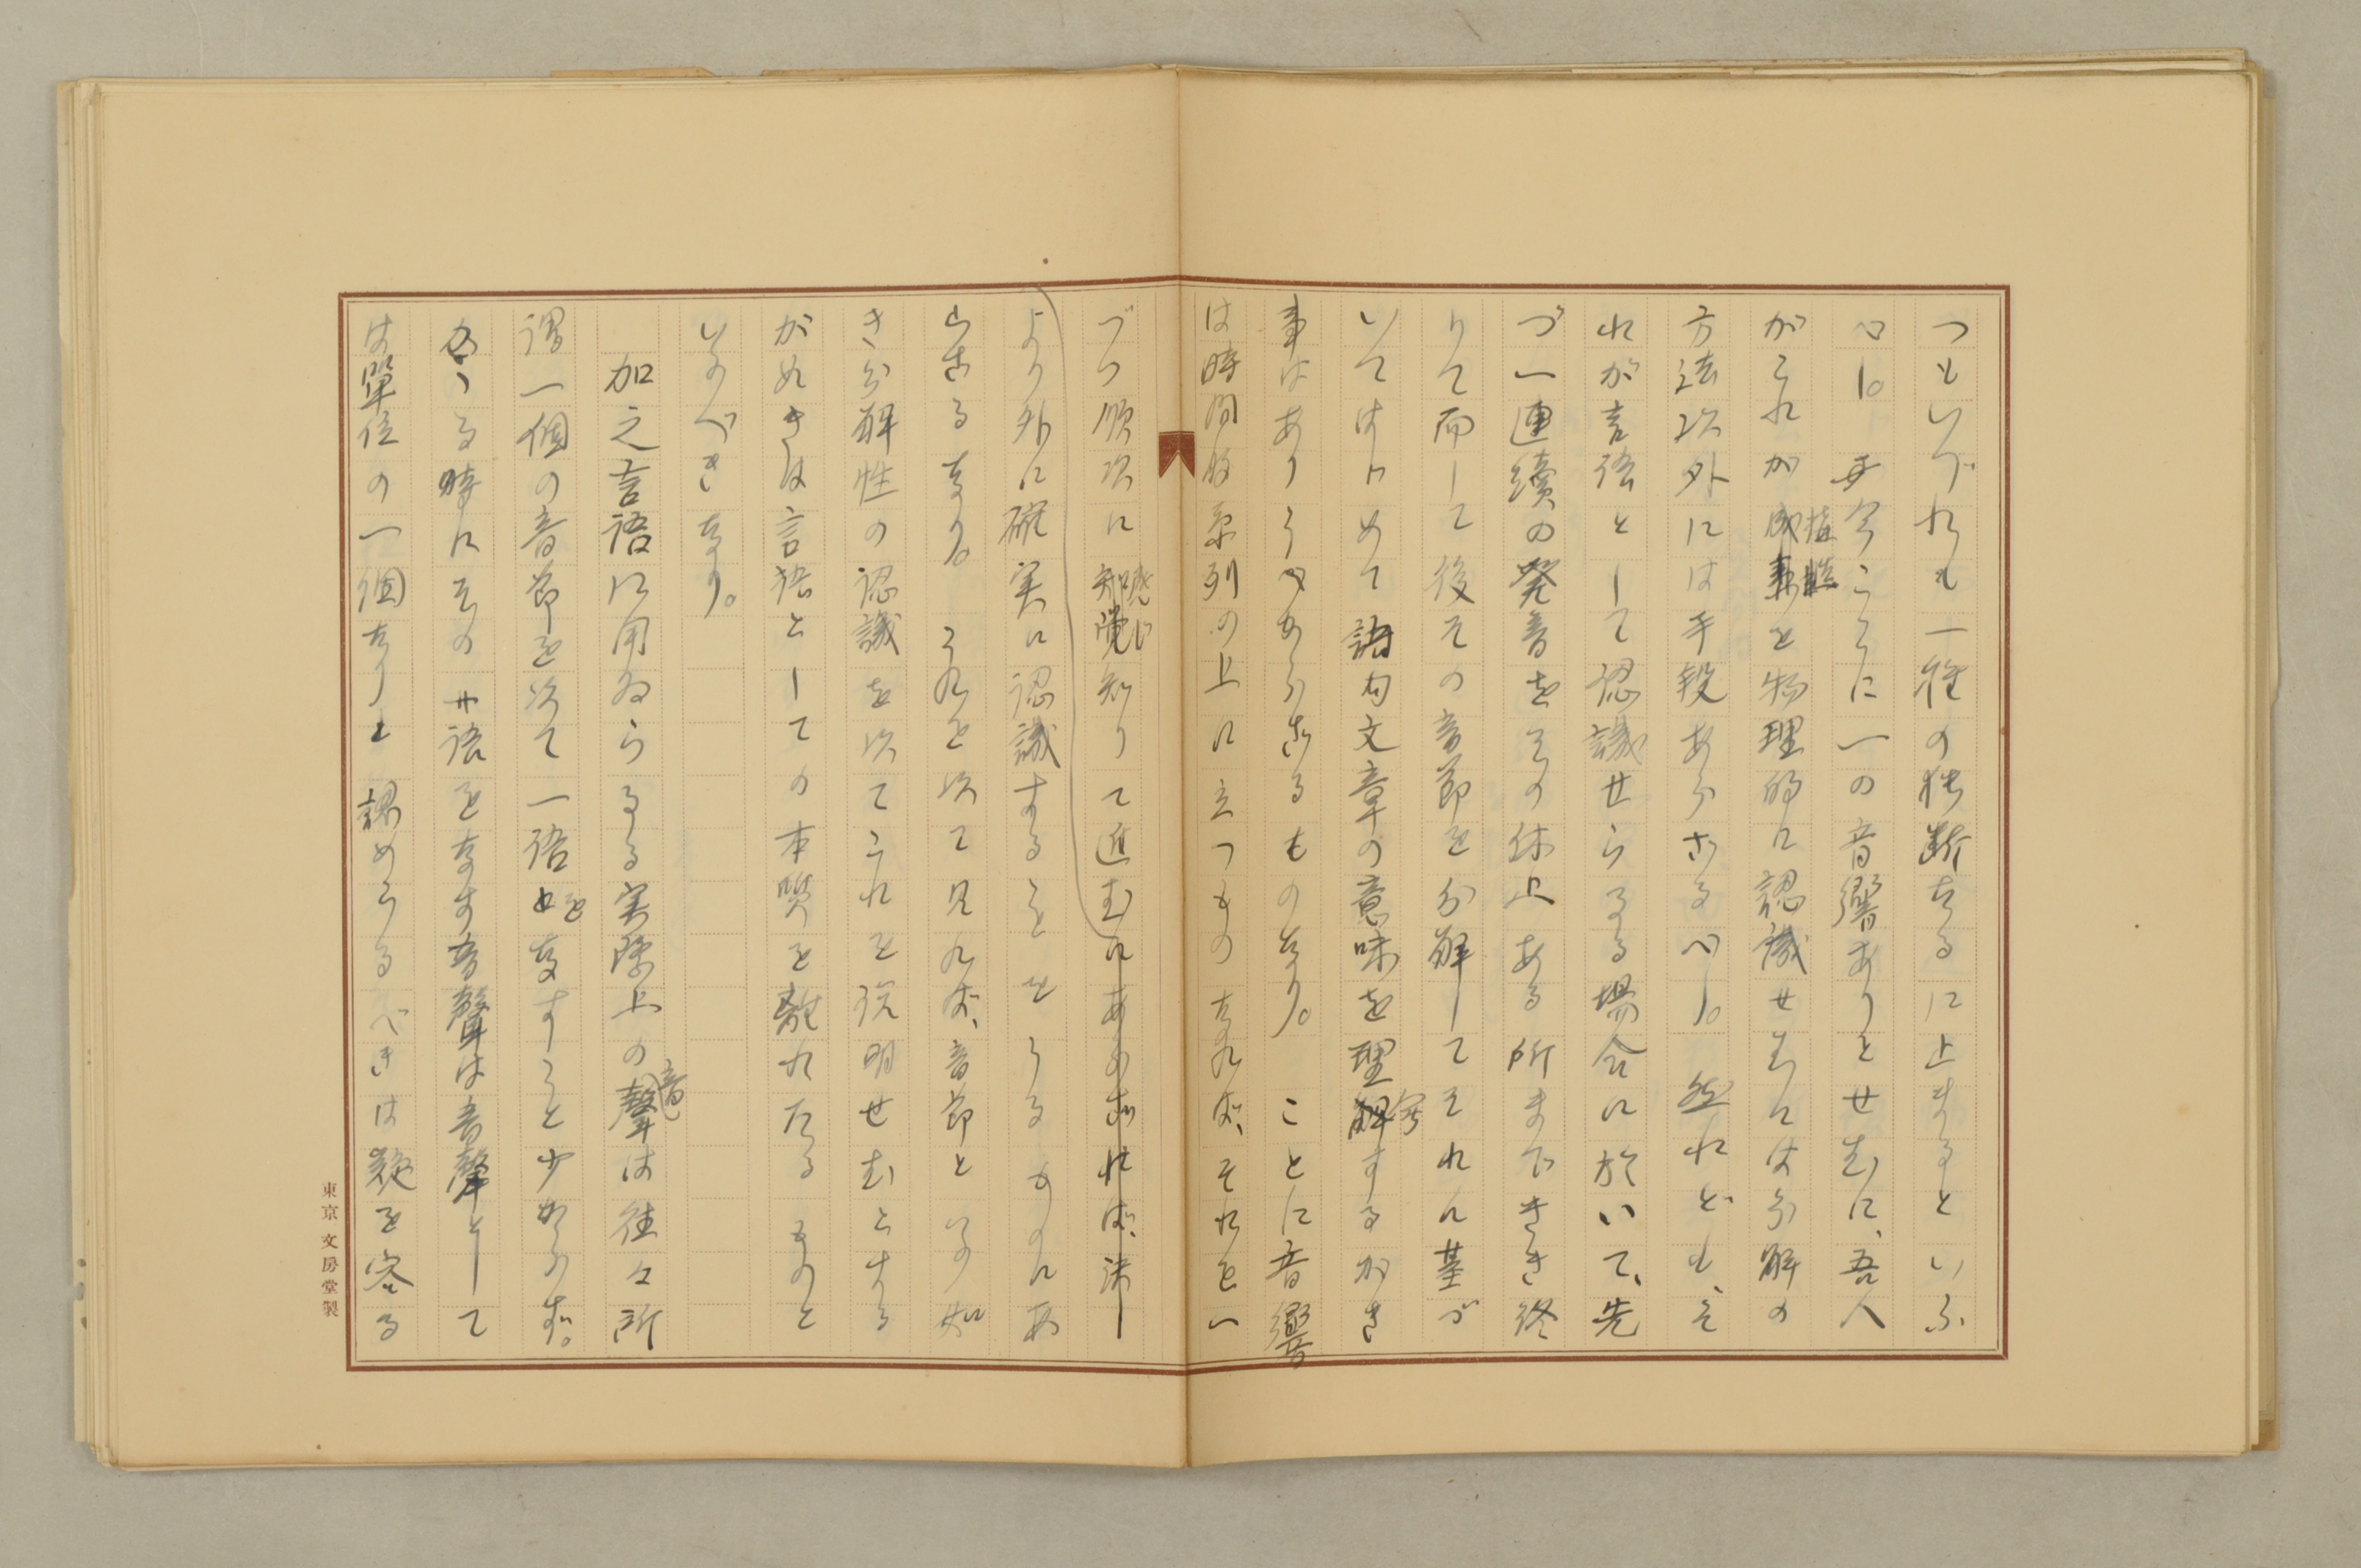 つもいづれも一種の独断たるに止まるといふ
べし。今こゝに一の音響ありとせむに、吾人
がこれが成事構造を物理的に認識せむには分解の
方法以外には手段あらざるべし。然れども、そ
れが言語として認識せらるる場合に於いて、先
づ一連續の発音をその休止ある所まできき終
りて而して後その音節を分解してそれに基づ
いてはじめて語句文章の意味を理解するがき
事はありうべからざるものなり。ことに音響
は時間的系列の上に立つものなれば、それを一
づつ順次に知覚感じ知りて進むにあらざれば、決し
より外に確実に認識することをうるものにあ
らざるなり。これを以て見れば、音節といふ如
き分解性の認識を以てこれを説明せむとする
がぬきは言語としての本質を離れたるものと
いふべきなり。
加之言語に用ゐらるる実際上の聲音は往々所
謂一個の音節を以て一語を支すこと少からず。
かゝる時にその語をなす音聲は音聲として
は單位の一個なりと認めらるべきは疑を容る
東京 文房堂製